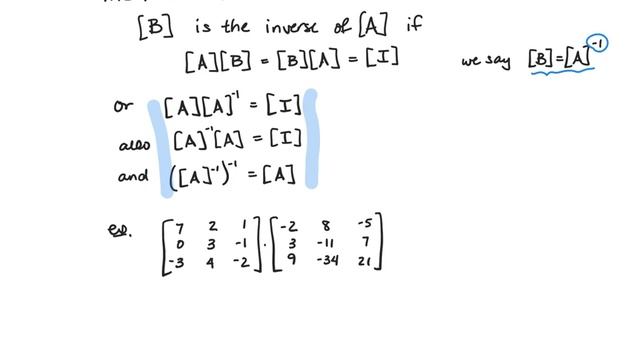 [B] is the inverse of [A] if
[A][B] = [B][A] = [I]
we say [B]=[A]⁻¹
or [A][A]⁻¹ = [I]
also [A]⁻¹[A] = [I]
and ([A]⁻¹)⁻¹ = [A]
ex. [7 2 1] · [-2 8 -5]
[0 3 -1] [3 -11 7]
[-3 4 -2] [9 -34 21]